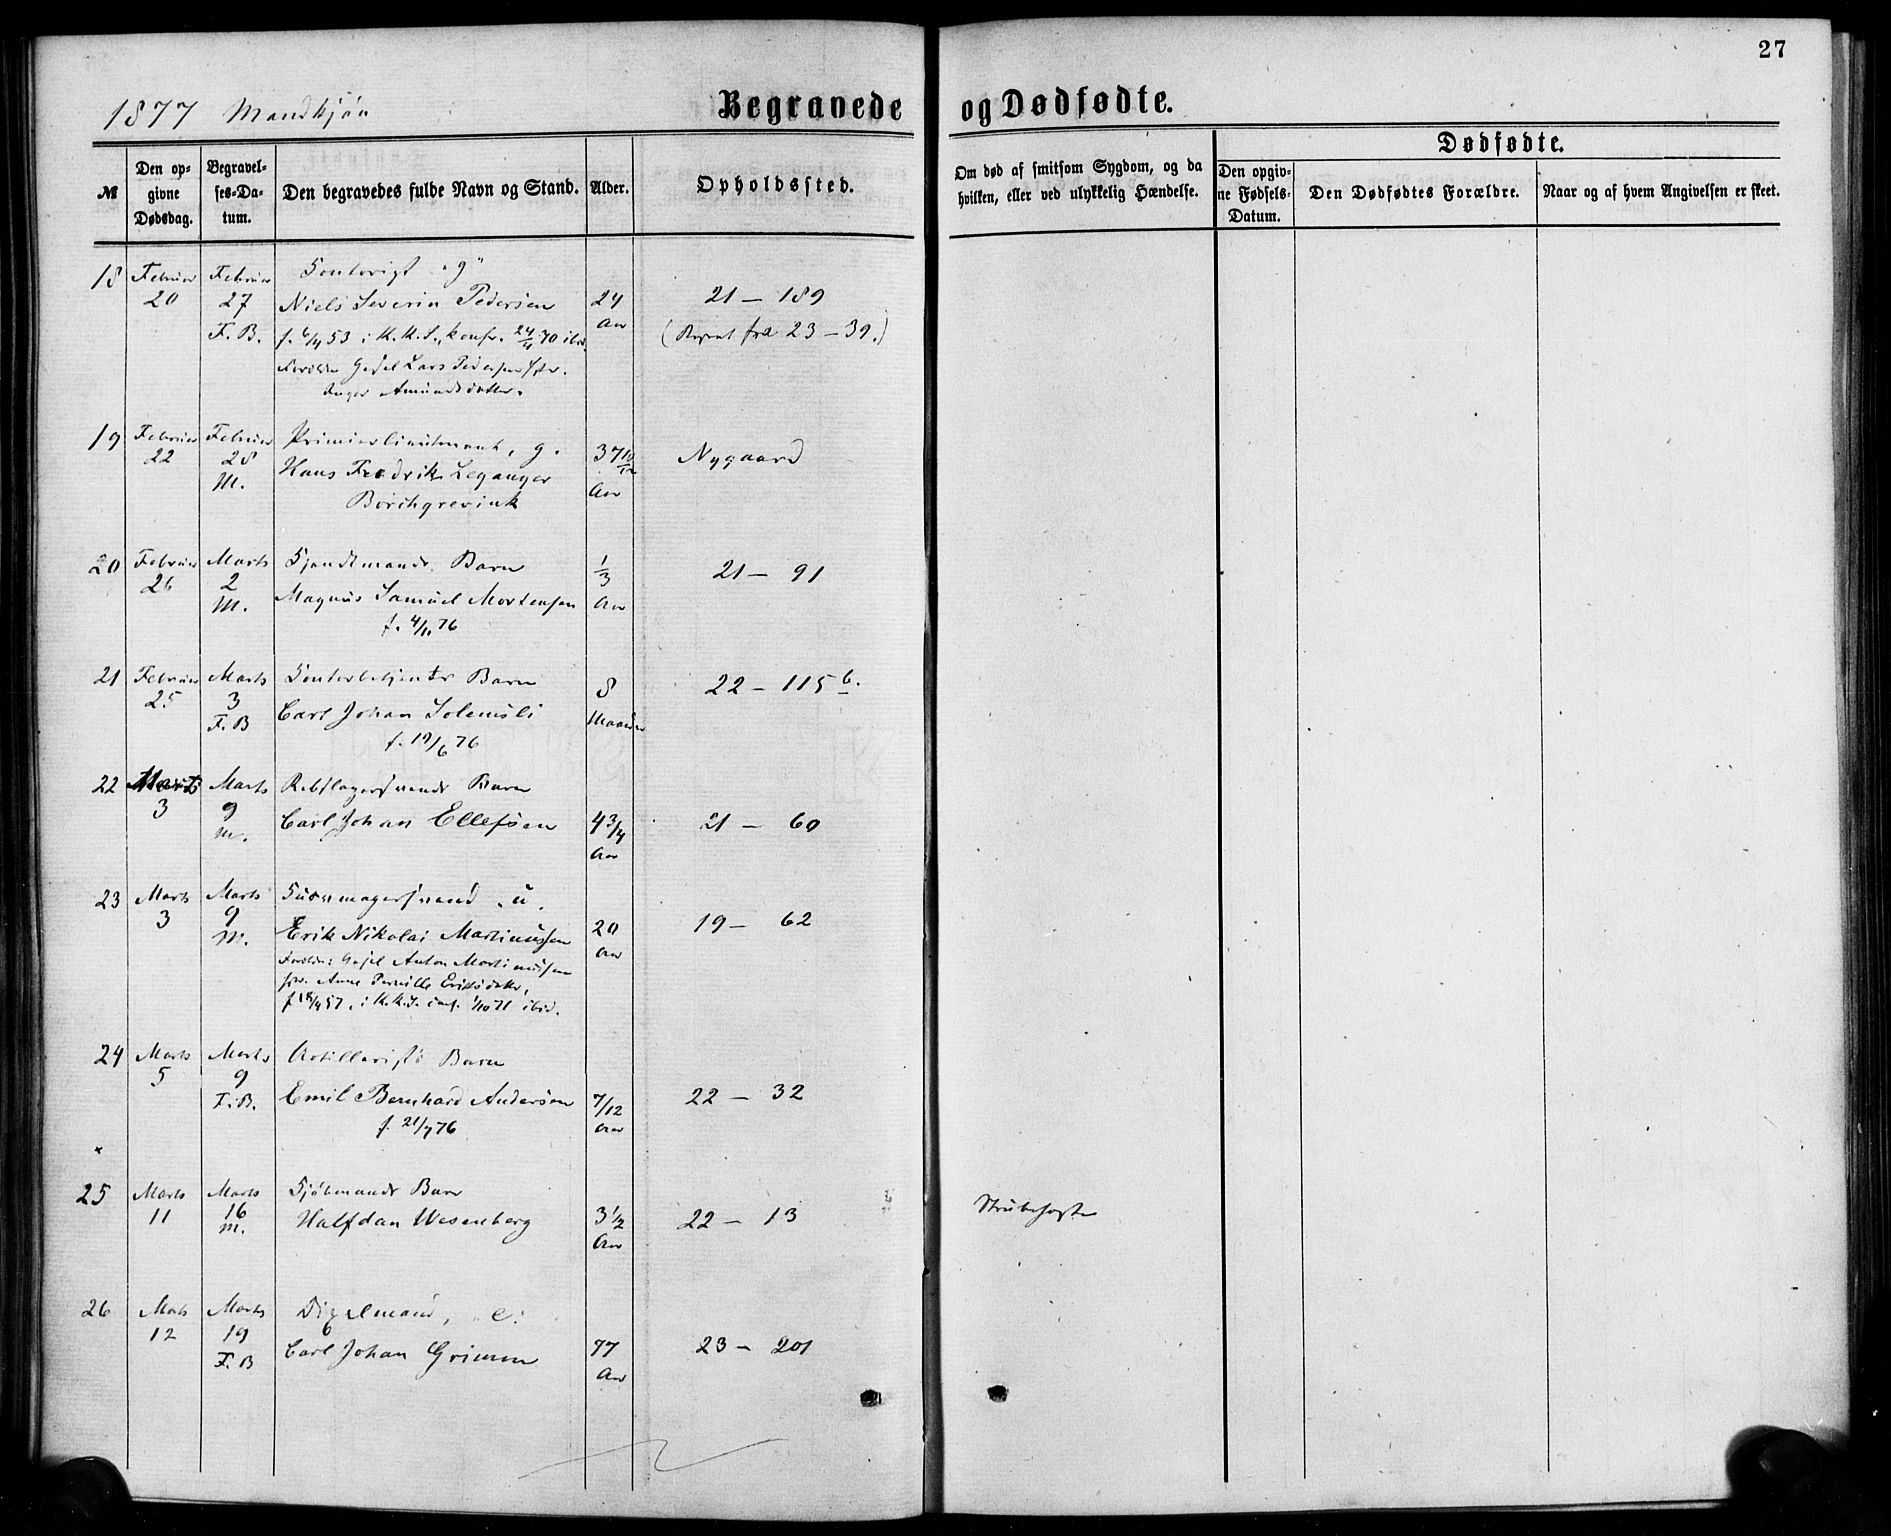 27
1877 Mandkjøn
Begravede og Dødfødte.
№
Den op-
givne
Dødsdag.
Begravel-
ses-Da-
tum.
Den begravedes fulde Navn og Stand.
Alder.
Opholdssted.
Om død af smitsom Sygdom, og da
hvilken, eller ved ulykkelig Hændelse.
Dødfødte.
Den opgiv-
ne Fødsels-
Datum.
Den Dødfødtes Forældre.
Naar og af hvem Angivelsen er skeet.
18 Februar Februar "g"
20 27 Niels Severin Pedersen 24 21 – 189
F. B. f. 6/4 53 i K.K.S., konf. 70 ibid. Aar ( fra 23 – 39.)
Lars Pedersen
Inger Amundsdatter.
19 Februar Februar Premierlieutenant, g. 37 10/12 Nygaard
22 28 Hans Fredrik Leganger Aar
M. Borchgrevink
20 Februar Marts Barn 1/3 21 – 91
26 2 Magnus Samuel Mortensen Aar
M. f. 4/11 76
21 Februar Marts Barn 8 22 – 115 b.
25 3 Carl Johan Solemsli Maaneder
F. B f. 19/6 76
22 Marts Marts Rebslagersvends Barn
3 9 Carl Johan Ellefsen 4 3/4 21 – 60
M. Aar
23 Marts Marts u.
3 9 Erik Nikolai Martinussen 20 19 – 62
M. Anton Martinussen Aar
Anne Pernille Eriksdatter,
f 18/4 57, i K.K.S. conf. 1/10 71 ibid.
24 Marts Marts Artillerists Barn
5 9 Emil Bernhard Andersen 7/12 22 – 32
F. B. f. 21/7 76 Aar
×
25 Marts Marts Sjømands Barn Strubehoste
11 16 Halfdan Wesenberg 3 1/2 22 – 13
M. Aar
26 Marts Marts e.
12 19 Carl Johan Grimm 77 23 – 201
F. B Aar